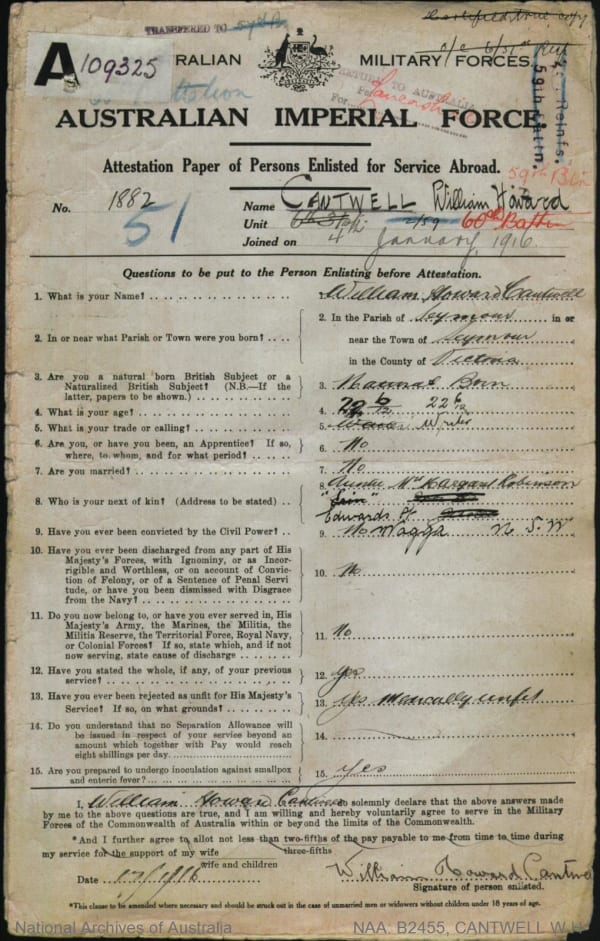 TRANSFERRED TO 59th Bn
Certified true copy
A109325
AUSTRALIAN MILITARY FORCES.
RETURN TO AUSTRALIA
AUSTRALIAN IMPERIAL FORCE.
59th Battn.
Reinfs.
Attestation Paper of Persons Enlisted for Service Abroad.
59th Bn
No. 1882
51
Name CANTWELL William Howard
Unit 2/59 60th Battn
Joined on 4 January 1916
Questions to be put to the Person Enlisting before Attestation.
1. What is your Name? William Howard Cantwell
2. In or near what Parish or Town were you born? 2. In the Parish of Seymour in or
near the Town of Seymour
in the County of Victoria
3. Are you a natural born British Subject or a
Naturalized British Subject? (N.B.—If the
latter, papers to be shown.) 3. Natural Born
4. What is your age? 4. 22 6/12 22 6/12
5. What is your trade or calling? 5. Writer
6. Are you, or have you been, an Apprentice? If so,
where, to whom, and for what period? 6. No
7. Are you married? 7. No
8. Who is your next of kin? (Address to be stated) 8. Auntie Mrs Margaret Robinson
Edwards St
Wagga N S. W
9. Have you ever been convicted by the Civil Power? 9. No
10. Have you ever been discharged from any part of His
Majesty's Forces, with Ignominy, or as Incor-
rigible and Worthless, or on account of Convic-
tion of Felony, or of a Sentence of Penal Servi
tude, or have you been Dismissed with Disgrace
from the Navy? 10. No
11. Do you now belong to, or have you ever served in, His
Majesty's Army, the Marines, the Militia, the
Militia Reserve, the Territorial Force, Royal Navy,
or Colonial Forces? If so, state which, and if not
now serving, state cause of discharge 11. No
12. Have you stated the whole, if any, of your previous
service? 12. Yes
13. Have you ever been rejected as unfit for His Majesty's
Service? If so, on what grounds? 13. Yes Medically unfit
14. Do you understand that no Separation Allowance will
be issued in respect of your service beyond an
amount which together with Pay would reach
eight shillings per day. 14.
15. Are you prepared to undergo inoculation against smallpox
and enteric fever? 15. Yes
I, William Howard Cantwell do solemnly declare that the above answers made
by me to the above questions are true, and I am willing and hereby voluntarily agree to serve in the Military
Forces of the Commonwealth of Australia within or beyond the limits of the Commonwealth.
*And I further agree to allot not less than two-fifths of the pay payable to me from time to time during
three-fifths
my service for the support of my wife
wife and children
Date
William Howard Cantwell
Signature of person enlisted.
*This clause to be amended where necessary and should be struck out in the case of unmarried men or widowers without children under 18 years of age.
National Archives of Australia NAA: B2455, CANTWELL W H